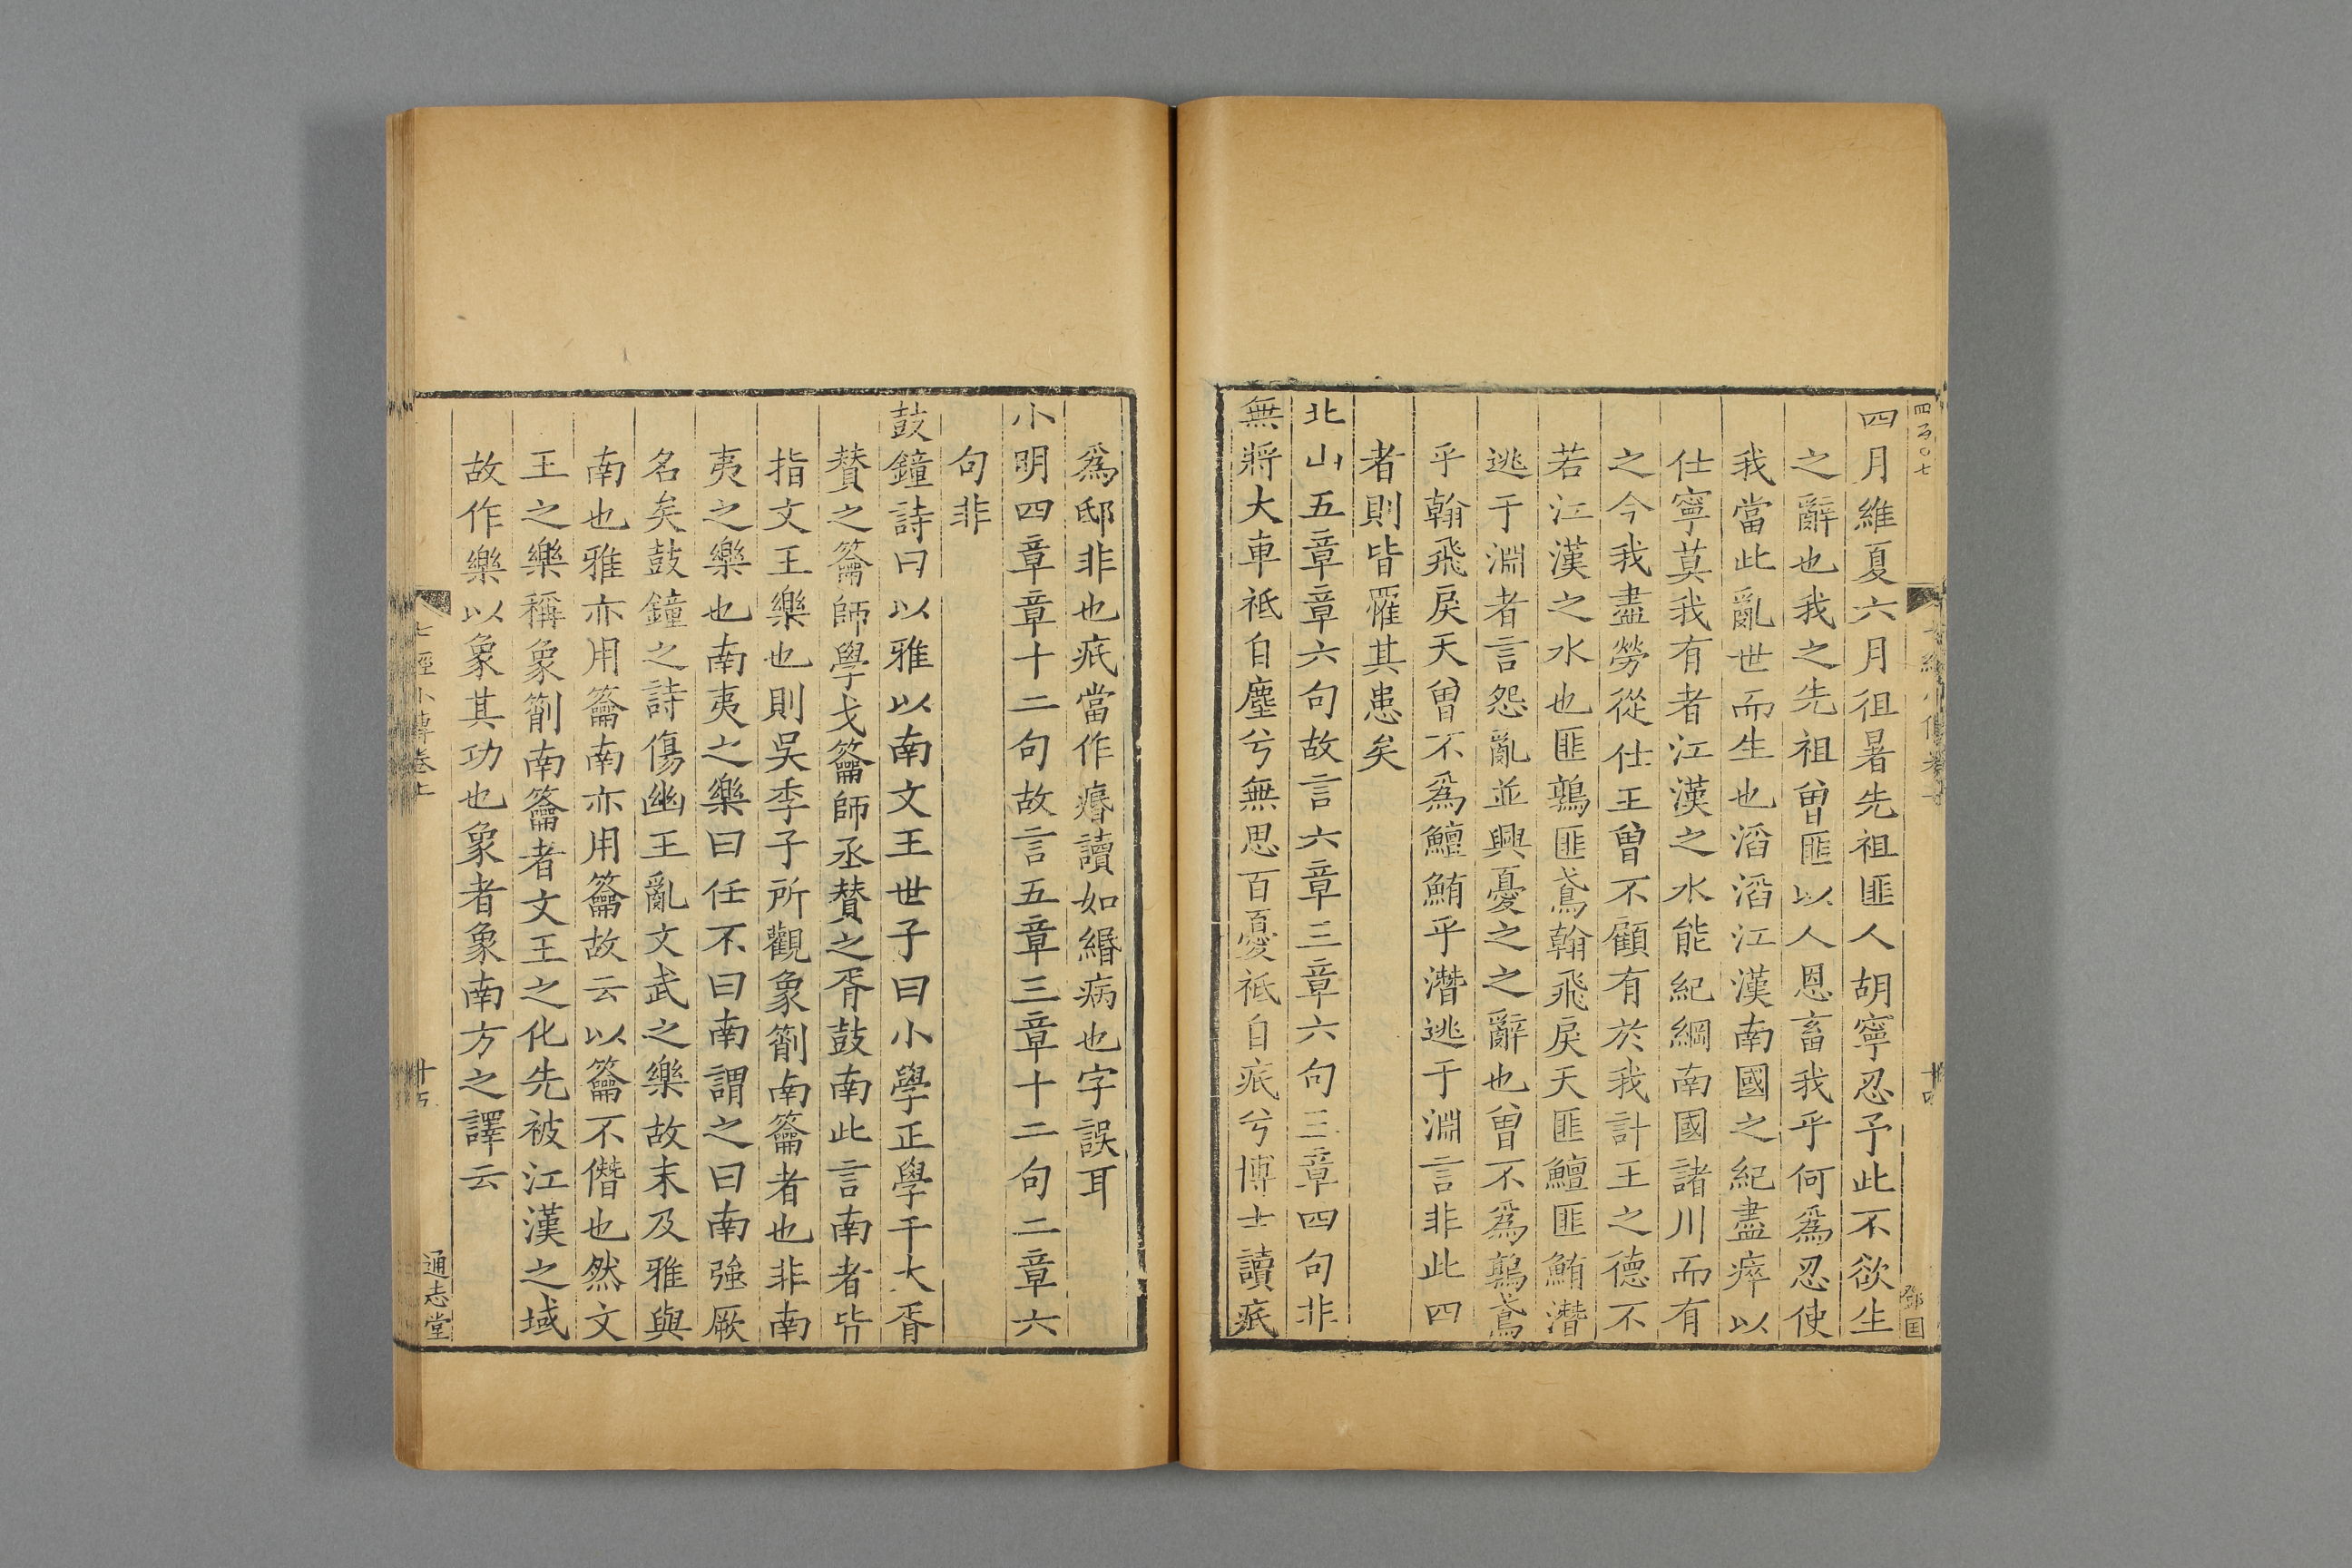 四月維夏六月徂暑先祖匪人胡寧忍予此不欲生
之辭也我之先祖曾匪以人恩畜我乎何爲忍使
我當此亂世而生也滔滔江漢南國之紀盡瘁以
仕寧莫我有者江漢之水能紀綱南國諸川而有
之今我盡勞從仕王曾不顧有於我計王之德不
若江漢之水也匪鶉匪鳶翰飛戾天匪鱣匪鮪潛
逃于淵者言怨亂並興憂之之辭也曾不爲鶉鳶
乎翰飛戾天曾不爲鱣鮪乎潛逃于淵言非此四
者則皆罹其患矣
北山五章章六句故言六章三章六句三章四句非
無將大車祗自塵兮無思百憂祗自疧兮博士讀疧
爲邸非也疧當作痻讀如緡病也字誤耳
小明四章章十二句故言五章三章十二句二章六
句非
鼓鐘詩曰以雅以南文王世子曰小學正學干大胥
賛之籥師學戈籥師丞賛之胥鼓南此言南者皆
指文王樂也則吳季子所觀象箾南籥者也非南
夷之樂也南夷之樂曰任不曰南謂之曰南強厥
名矣鼓鐘之詩傷幽王亂文武之樂故末及雅與
南也雅亦用籥南亦用籥故云以籥不僭也然文
王之樂稱象箾南籥者文王之化先被江漢之域
故作樂以象其功也象者象南方之譯云
七經小傳卷上
十五
通志堂